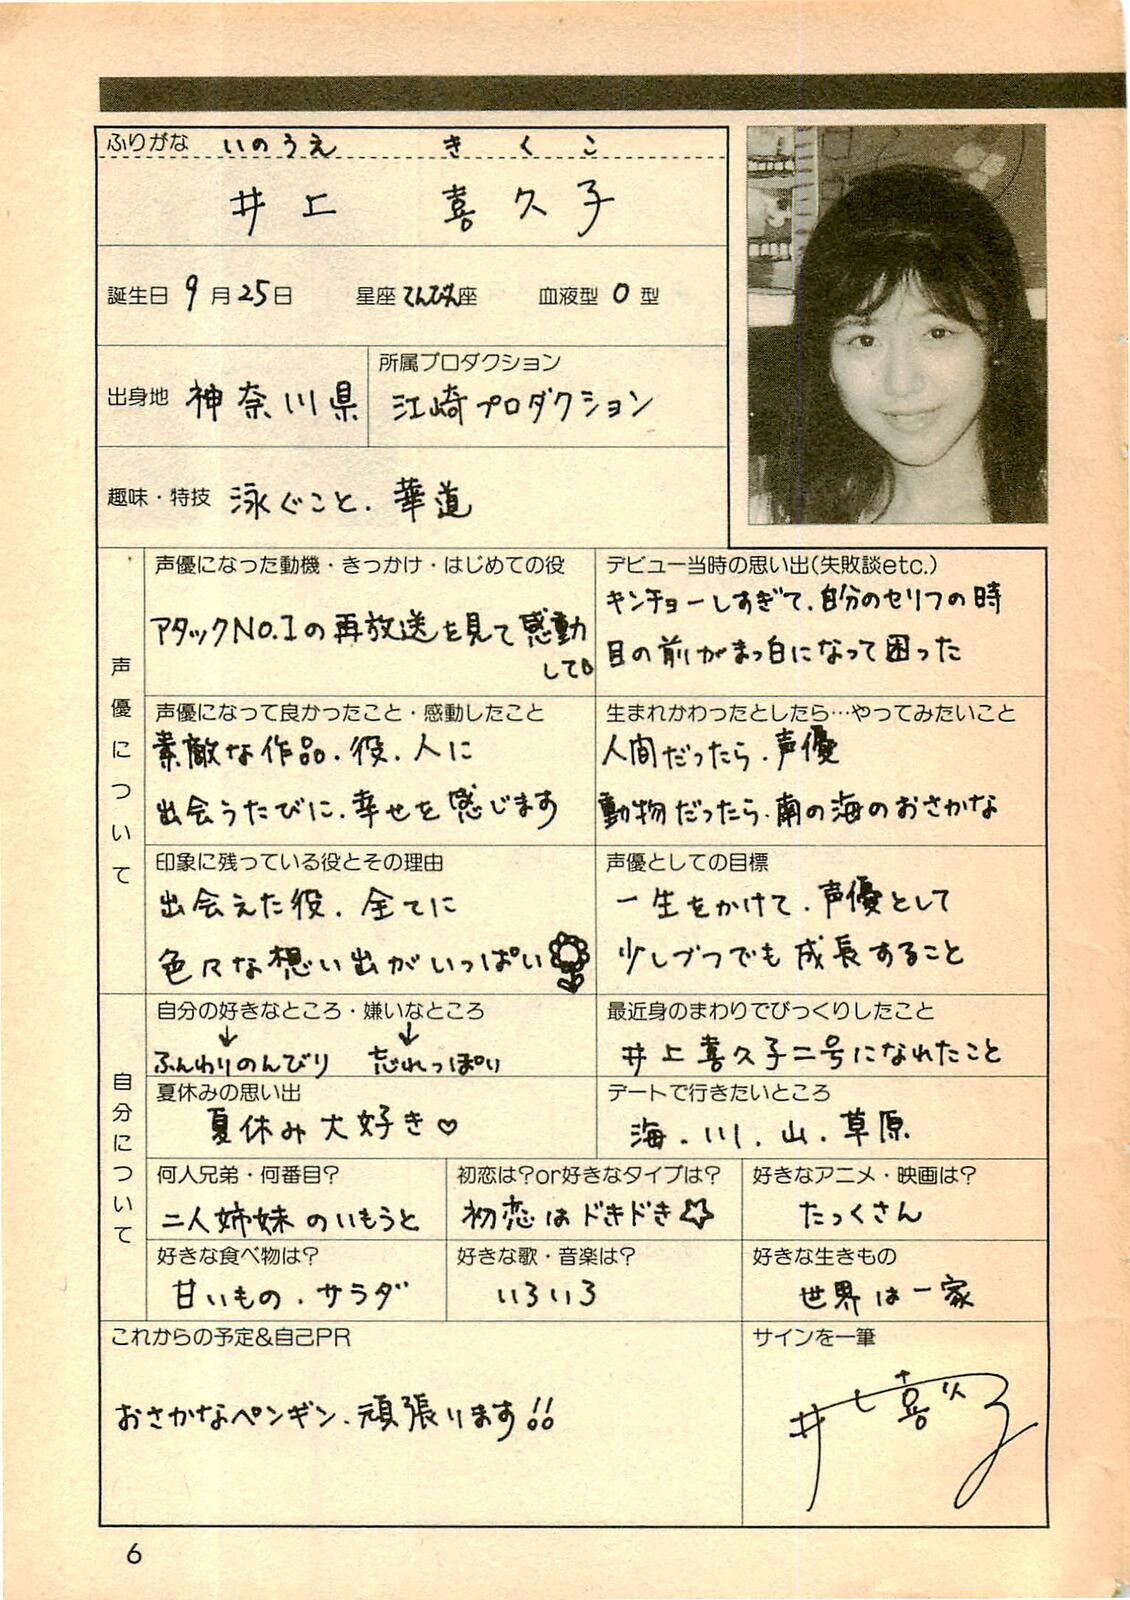 ふりがな いのうえ きくこ
井上 喜久子
誕生日 9月25日 星座 てんびん座 血液型 O 型
出身地 神奈川県
所属プロダクション
江崎プロダクション
趣味・特技 泳ぐこと、華道
声優について
声優になった動機・きっかけ・はじめての役
アタックNO.1の再放送を見て感動
して
デビュー当時の思い出(失敗談etc.)
キンチョーしすぎて、自分のセリフの時
目の前がまっ白になって困った
声優になって良かったこと・感動したこと
素敵な作品、役、人に
出会うたびに、幸せを感じます
生まれかわったとしたら…やってみたいこと
人間だったら、声優
動物だったら、南の海のおさかな
印象に残っている役とその理由
出会えた役、全てに
色々な想い出がいっぱい
声優としての目標
一生をかけて、声優として
少しづつでも成長すること
自分について
自分の好きなところ・嫌いなところ
↓ ↓
ふんわりのんびり 忘れっぽい
最近身のまわりでびっくりしたこと
井上喜久子二号になれたこと
夏休みの思い出
夏休み大好き♡
デートで行きたいところ
海、川、山、草原
何人兄弟・何番目?
二人姉妹のいもうと
初恋は?or好きなタイプは?
初恋はドキドキ☆
好きなアニメ・映画は?
たっくさん
好きな食べ物は?
甘いもの、サラダ
好きな歌・音楽は?
いろいろ
好きな生きもの
世界は一家
これからの予定&自己PR
おさかなペンギン、頑張ります!!
サインを一筆
井上喜久子
6